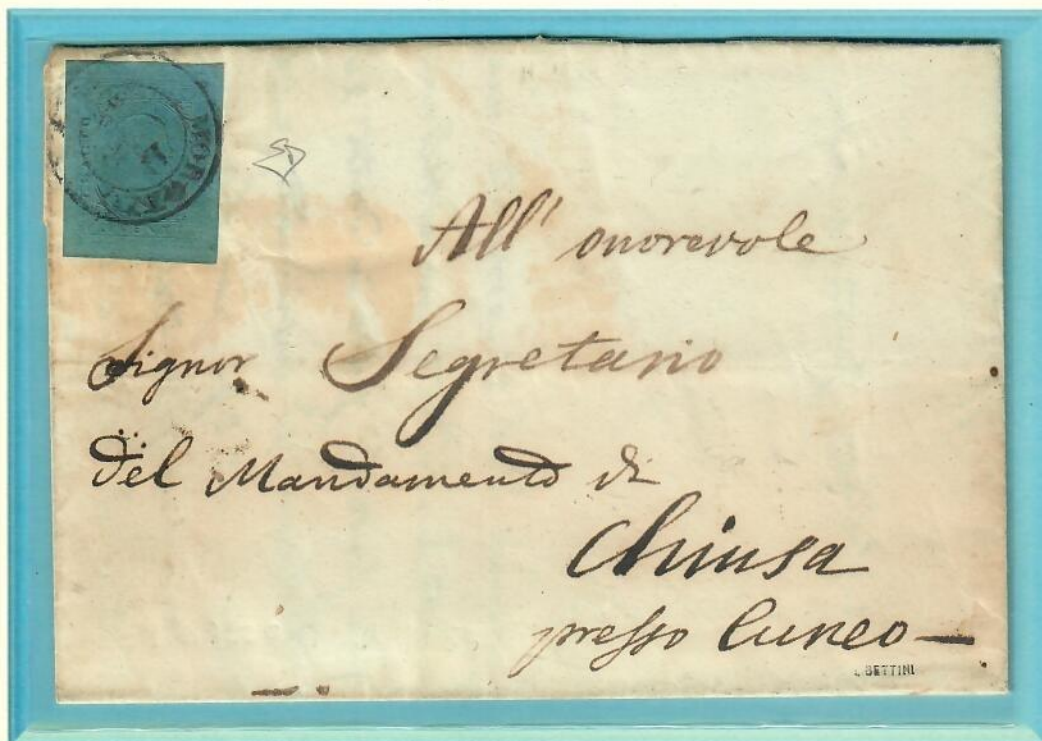 All' onorevole
Signor Segretario
del Mandamento di
Chiusa
presso Cuneo
BETTINI